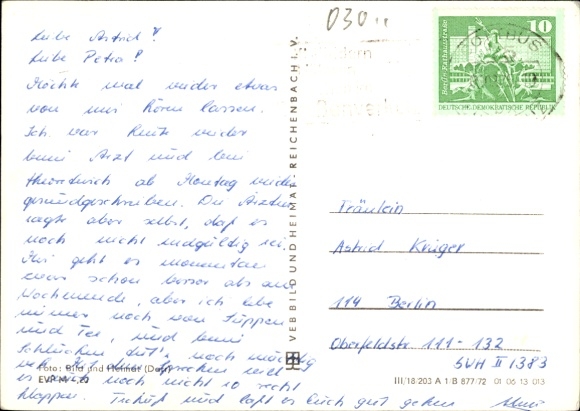 Liebe Astrid!
Liebe Petra!
Möchte mal wieder etwas
von mir hören lassen.
Ich war heute wieder
beim Arzt und bin
theoretisch ab Montag wieder
gesundgeschrieben. Die Ärztin
sagte aber selbst, daß es
noch nicht endgültig sei.
Mir geht es momentan
zwar schon besser als am
Wochenende, aber ich lebe
immer noch von Suppen
und Tee, und beim
Schlucken tut's noch mächtig
weh, das Sprechen will
noch nicht so recht
klappen. Tschüß und laßt es Euch gut gehen
Foto: Bild und Heimat
EVP M 0,20
VEB BILD UND HEIMAT · REICHENBACH I. V.
030
10
Berlin-Rathausstraße
DEUTSCHE DEMOKRATISCHE REPUBLIK
Fräulein
Astrid Krüger
114 Berlin
Oberfeldstr. 111-132
SVH II 1383
III/18/203 A 1 B 877/72 01 06 13 013